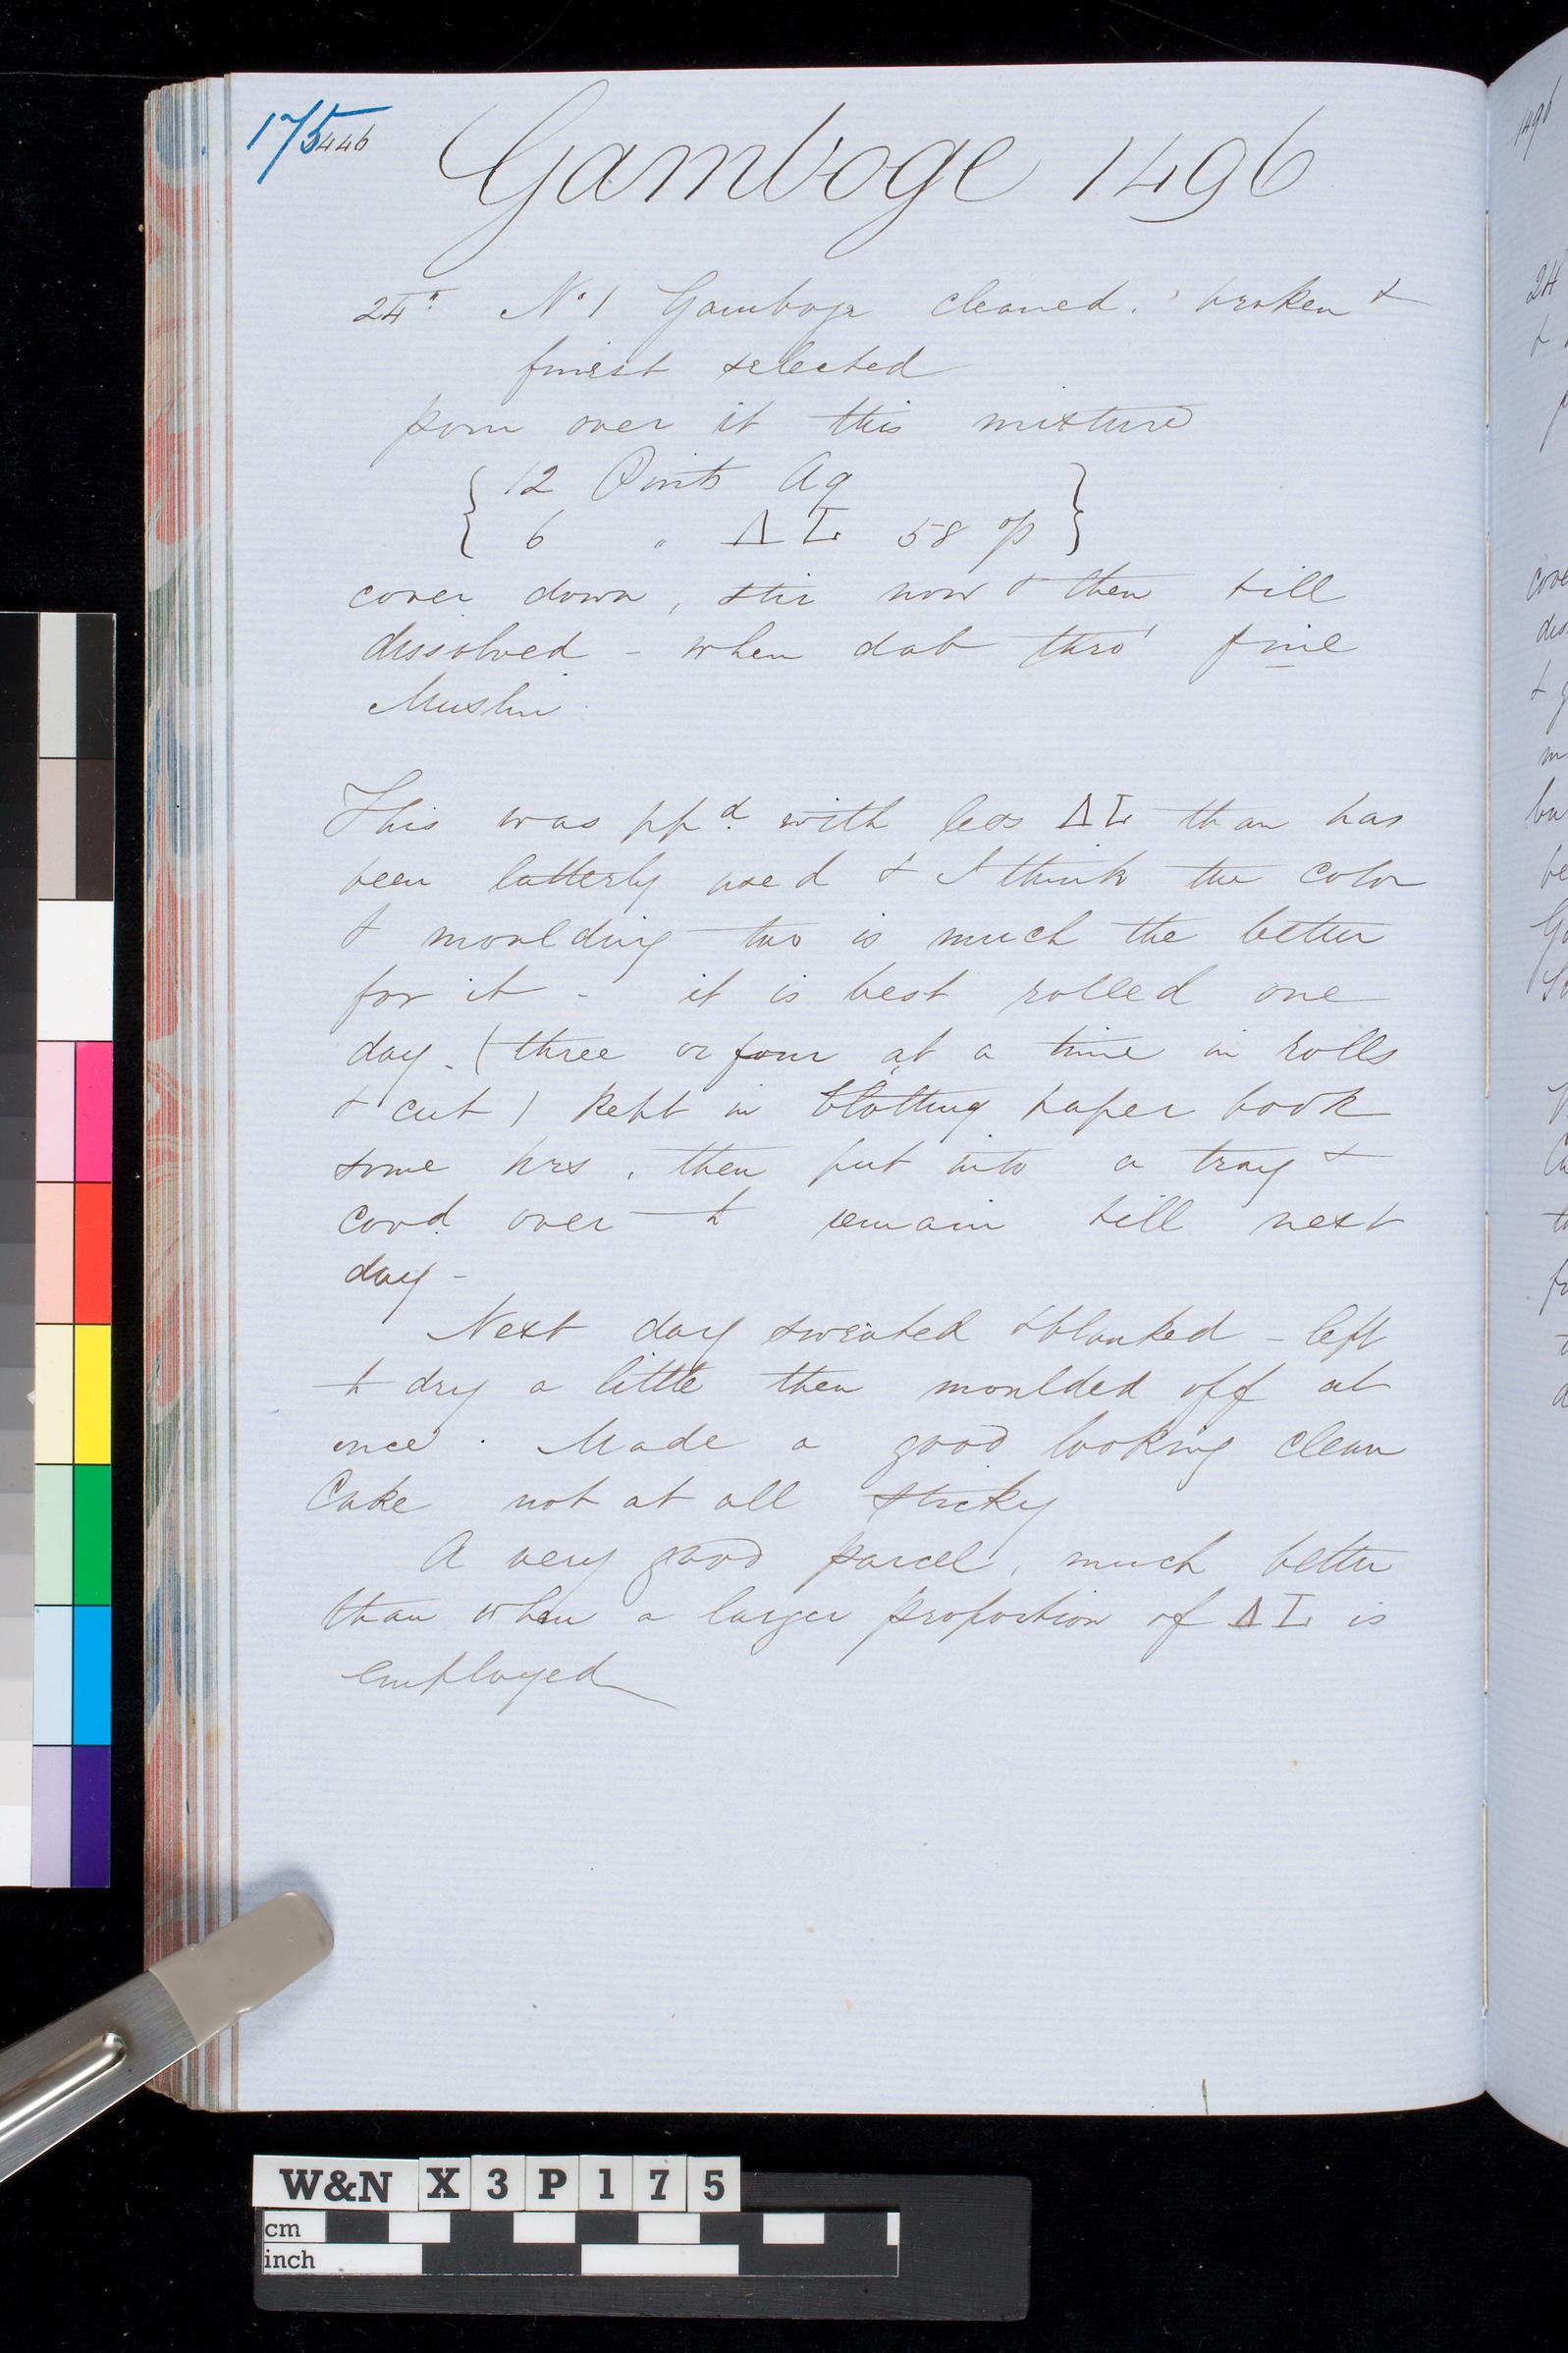 175 446
Gamboge 1496
24" No 1 Gamboge cleaned. broken &
finest selected
pour over it this mixture
12 Pints Aq
6 " Δ L 58 op
cover down, stir now & then till
dissolved - when dab thro' fine
Muslin
This was ppd with less ΔL than has
been latterly used & I think the color
& moulding too is much the better
for it - it is best rolled one
day. (three or four at a time in rolls
& cut) kept in blotting paper book
some hrs, then put into a tray &
covd over to remain till next
day -
Next day sweated & blanked - left
to dry a little then moulded off at
once. Made a good looking clean
Cake not at all sticky
A very good parcel, much better
than when a larger proportion of ΔL is
employed
W&N X3P175
cm
inch